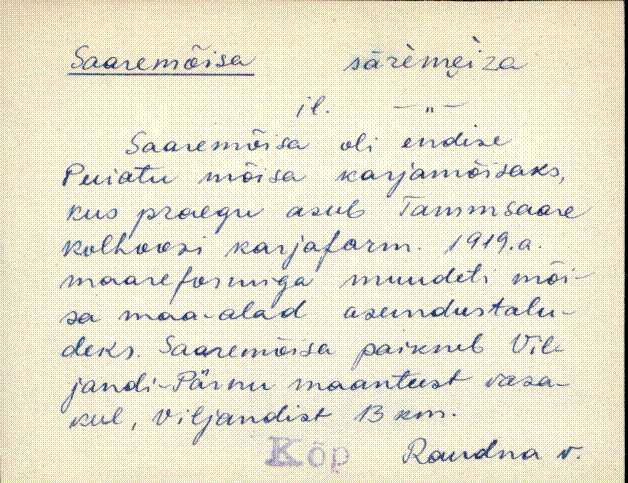 Saaremõisa sārèmęiza
il. —"—
Saaremõisa oli endise
Puiatu mõisa karjamõisaks,
kus praegu asub Tammsaare
kolhoosi karjafarm. 1919.a.
maareformiga muudeti mõi-
sa maa-alad asundustalu-
deks. Saaremõisa paikneb Vil-
jandi-Pärnu maanteest vasa-
kul, Viljandist 13 km.
Kõp Raudna v.